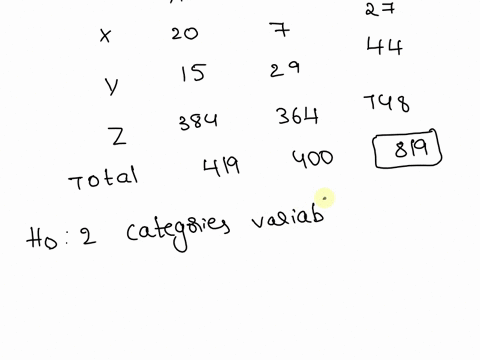 27
X 20 7 44
Y 15 29
Z 384 364 748
Total 419 400 819
H0: 2 categories variab